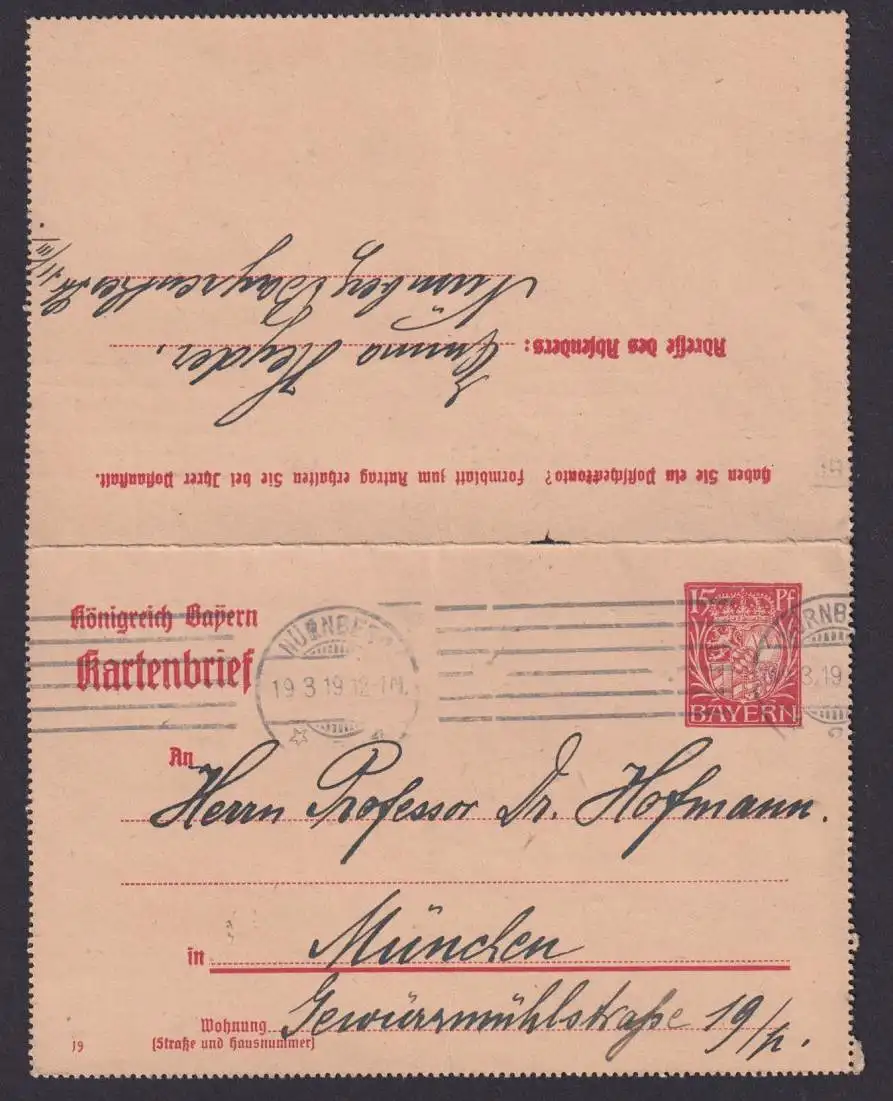 Adresse des Absenders: Emma Heyder,
Nürnberg Bayreutherstr. 11/III.
Haben Sie ein Postscheckkonto? Formblatt zum Antrag erhalten Sie bei Ihrer Postanstalt.
Königreich Bayern
Kartenbrief
15 Pf
BAYERN
NÜRNBERG
19.3.19.12-1N.
An
Herrn Professor Dr. Hofmann.
in München
Wohnung Gewürzmühlstraße 19/
(Straße und Hausnummer)
19